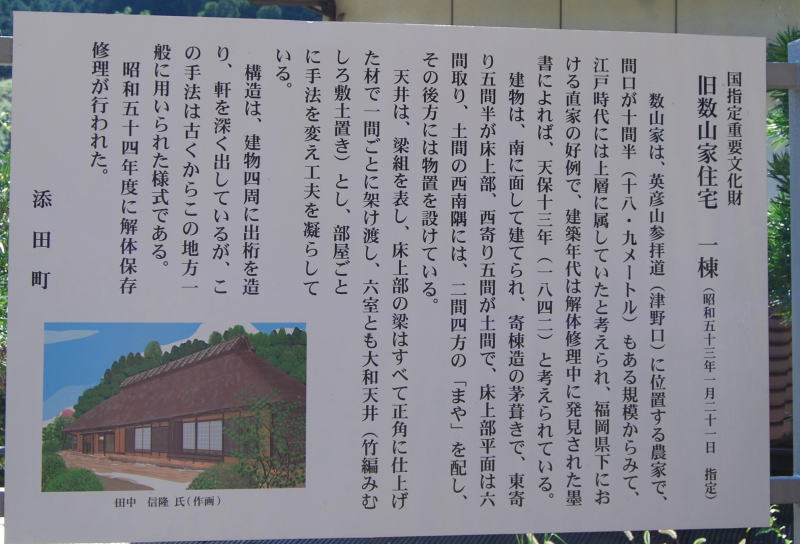 国指定重要文化財
旧数山家住宅 一棟（昭和五十三年一月二十一日 指定）
数山家は、英彦山参拝道（津野口）に位置する農家で、
間口が十間半（十八・九メートル）もある規模からみて、
江戸時代には上層に属していたと考えられ、福岡県下にお
ける直家の好例で、建築年代は解体修理中に発見された墨
書によれば、天保十三年（一八四二）と考えられている。
建物は、南に面して建てられ、寄棟造の茅葺きで、東寄
り五間半が床上部、西寄り五間が土間で、床上部平面は六
間取り、土間の西南隅には、二間四方の「まや」を配し、
その後方には物置を設けている。
天井は、梁組を表し、床上部の梁はすべて正角に仕上げ
た材で一間ごとに架け渡し、六室とも大和天井（竹編みむ
しろ敷土置き）とし、部屋ごと
に手法を変え工夫を凝らして
いる。
構造は、建物四周に出桁を造
り、軒を深く出しているが、こ
の手法は古くからこの地方一
般に用いられた様式である。
昭和五十四年度に解体保存
修理が行われた。
添田町
田中 信隆 氏（作画）